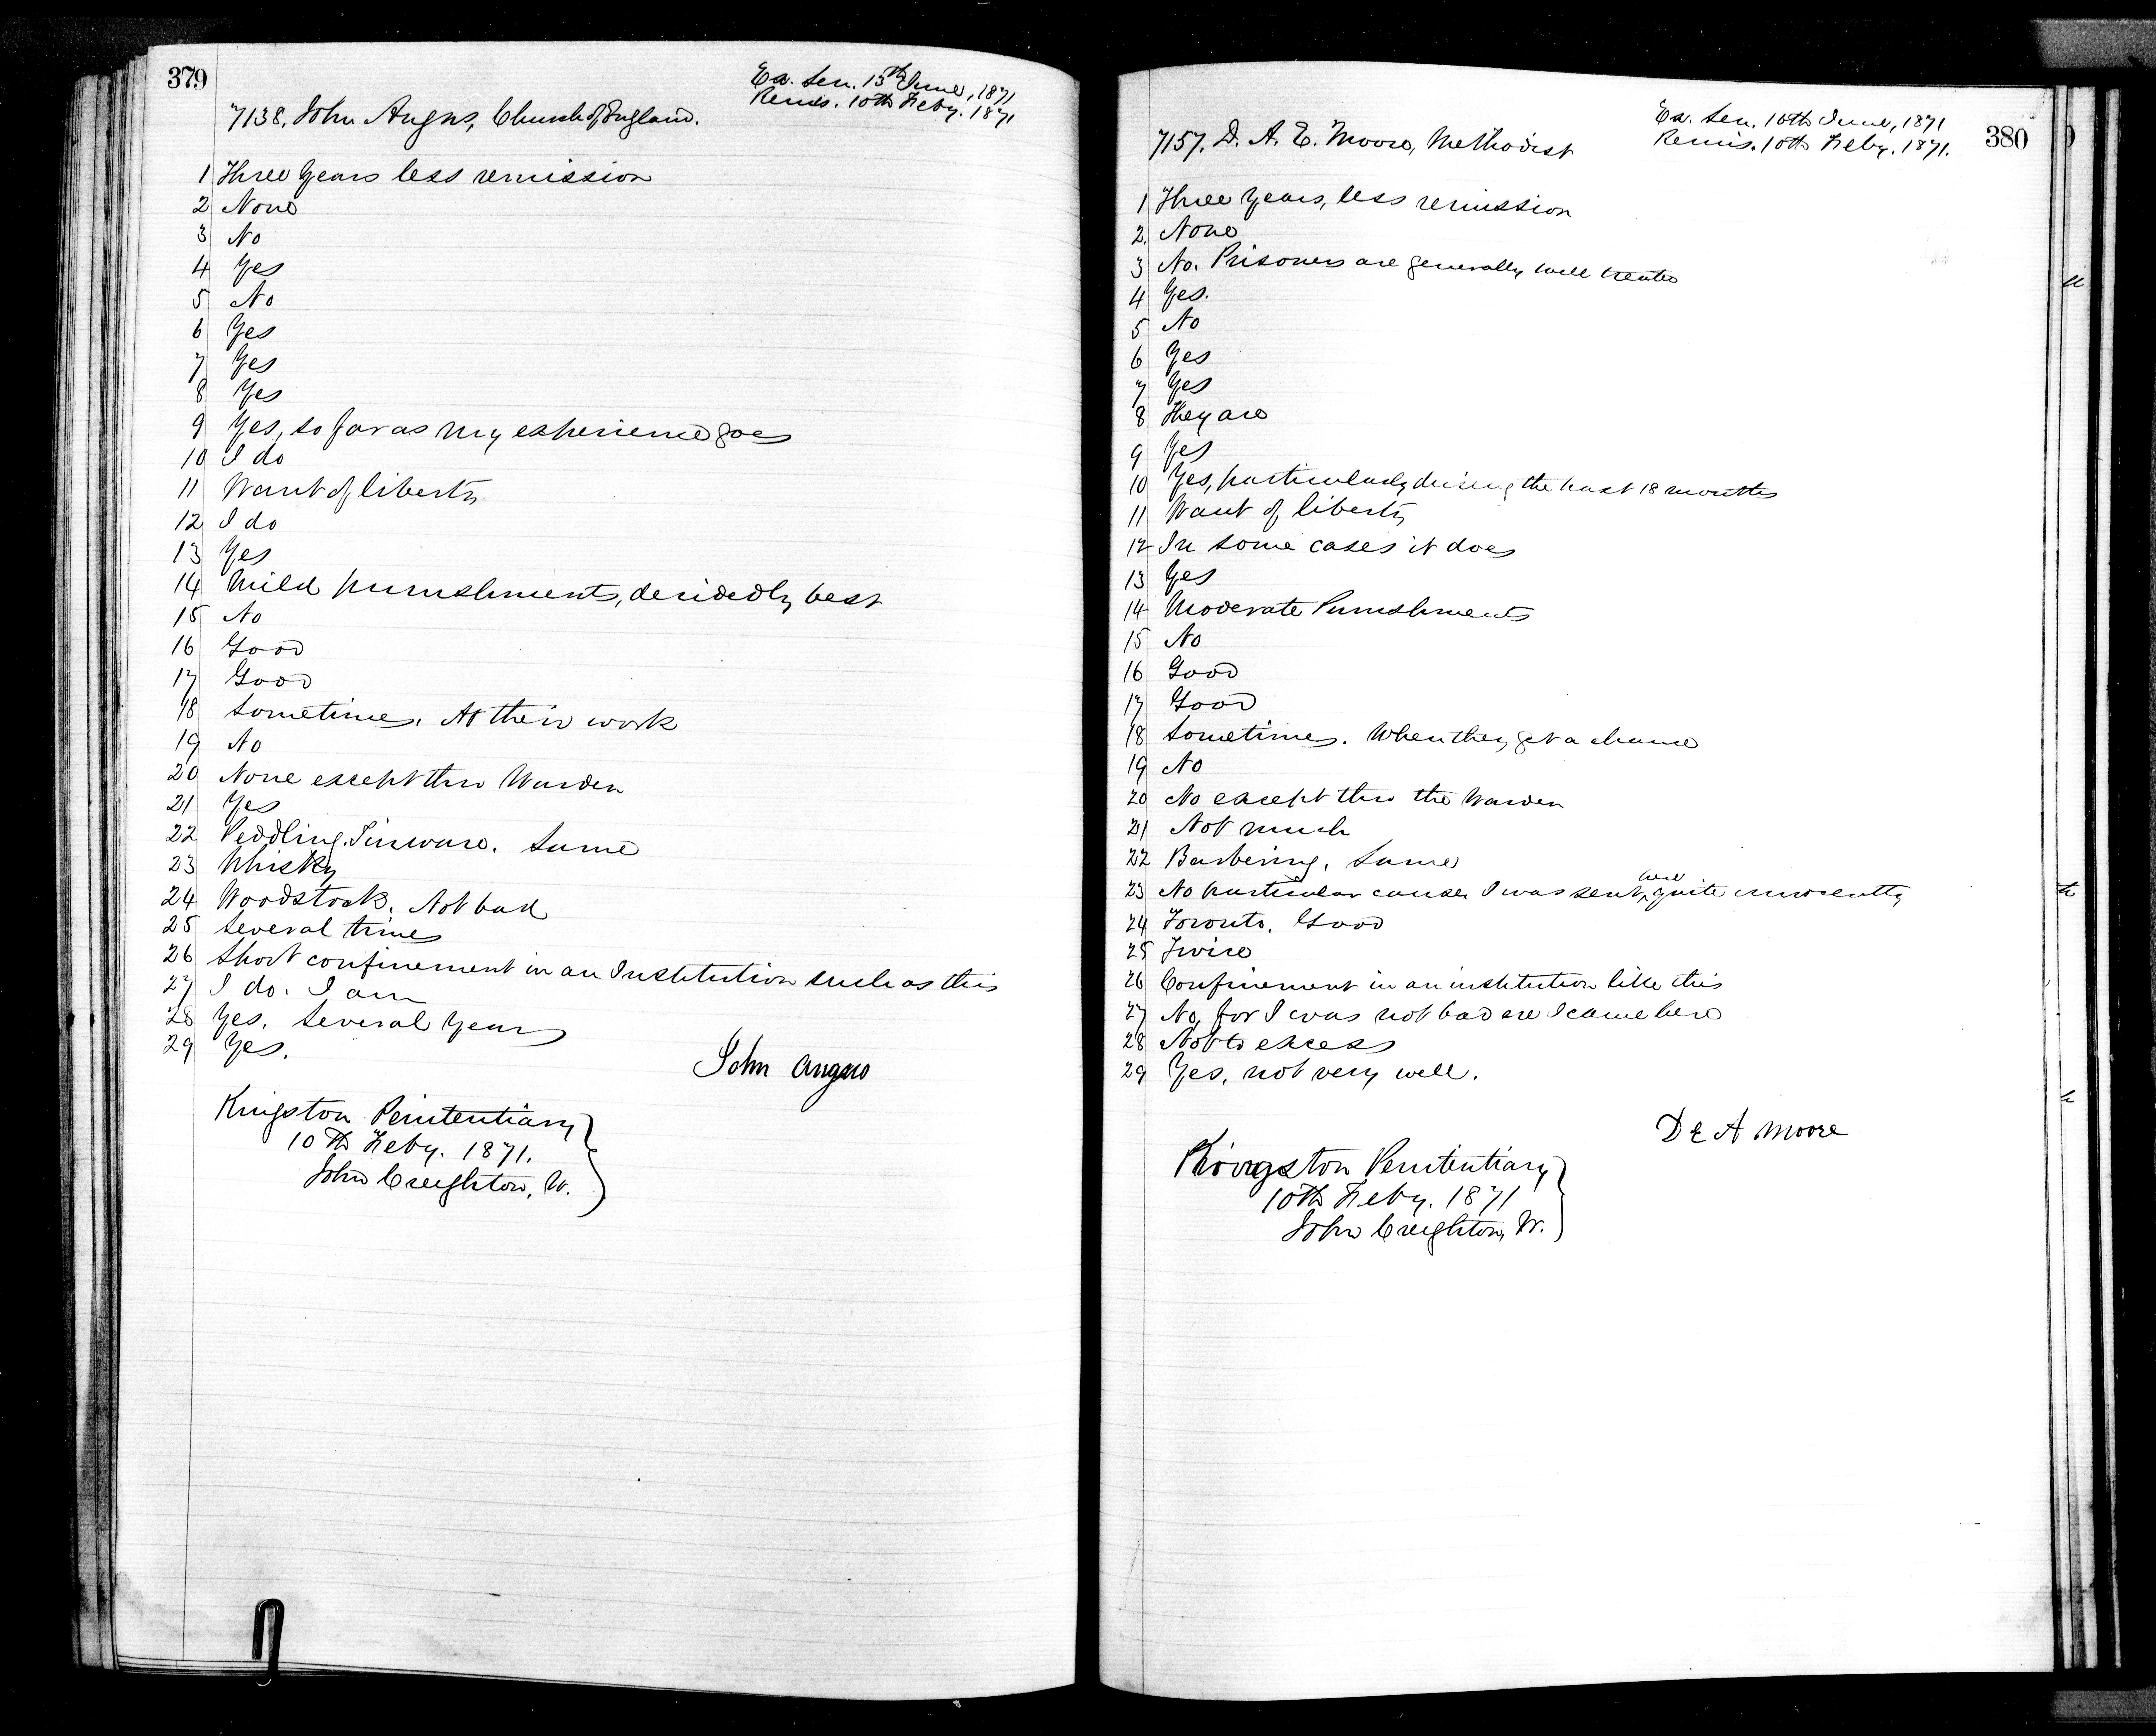 379
Ex. Sen. 15th June, 1871
Remis. 10th Feby. 1871
7138, John Angus, Church of England.
1 Three years less remission
2 None
3 No
4 Yes
5 No
6 Yes
7 Yes
8 Yes
9 Yes, so far as my experience goes
10 I do
11 Want of liberty
12 I do
13 Yes
14 Mild punishments, decidedly best
15 No
16 Good
17 Good
18 Sometimes. At their work
19 No
20 None except thro Warden
21 Yes
22 Peddling Tinware. Same
23 Whisky
24 Woodstock. Not bad
25 Several times
26 Short confinement in an Institution such as this
27 I do. I am
28 Yes. Several years
29 Yes.
John Angus
Kingston Penitentiary
10th Feby. 1871.
John Creighton, W.
380
Ex. Sen. 16th June, 1871
Remis. 10th Feby. 1871.
7157, D. A. E. Moore, Methodist
1 Three years, less remission
2. None
3 No. Prisoners are generally well treated
4 Yes.
5 No
6 Yes
7 Yes
8 They are
9 Yes
10 Yes, particularly during the past 18 months
11 Want of liberty
12 In some cases it does
13 Yes
14 Moderate Punishments
15 No
16 Good
17 Good
18 Sometimes. When they get a chance
19 No
20 No except thro the Warden
21 Not much
22 Barbering. Same
23 No particular cause, I was sent here quite innocently
24 Toronto. Good
25 Twice
26 Confinement in an institution like this
27 No, for I was not bad ere I came here
28 Not to excess
29 Yes, not very well.
D E A Moore
Kingston Penitentiary
10th Feby. 1871
John Creighton, W.